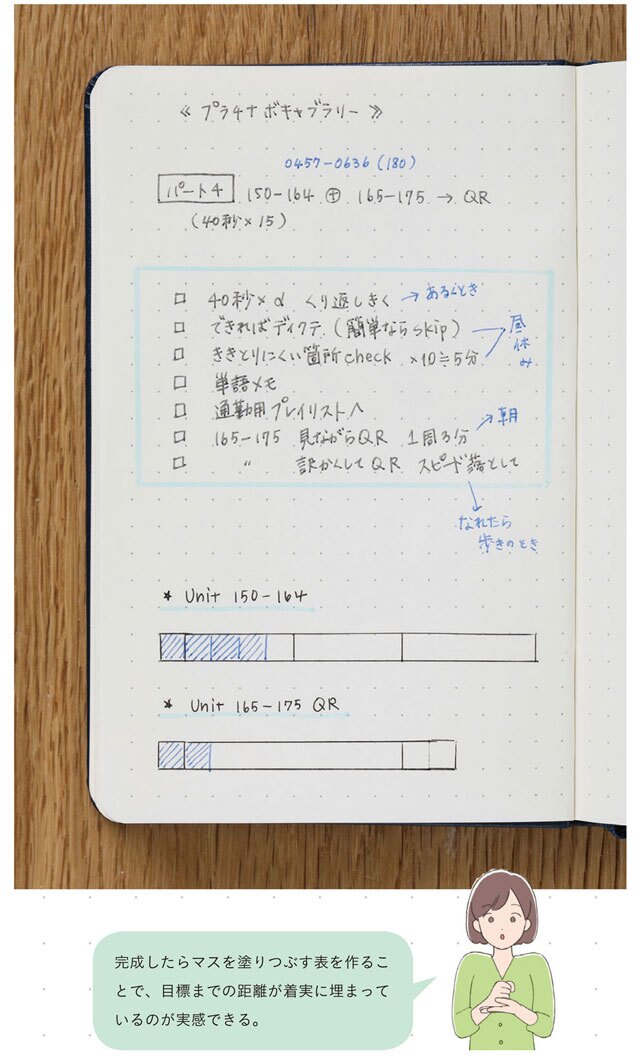 《プラチナボキャブラリー》
0457-0636(180)
パート4 150-164 ⊕ 165-175 → QR
(40秒×15)
□ 40秒×α くり返しきく → あるくとき
□ できればディクテ(簡単ならskip)
□ ききとりにくい箇所check ×10≒5分
昼休み
□ 単語メモ
□ 通勤用プレイリストへ
□ 165-175 見ながらQR 1周3分 → 朝
□ 〃 訳かくしてQR スピード落として
なれたら
歩きのとき
* Unit 150-164
* Unit 165-175 QR
完成したらマスを塗りつぶす表を作るこ
とで、目標までの距離が着実に埋まって
いるのが実感できる。